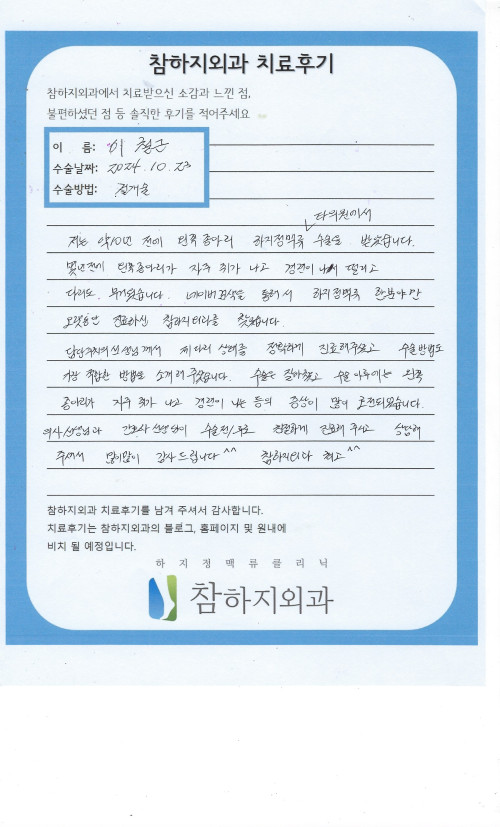 참하지외과 치료후기
참하지외과에서 치료받으신 소감과 느낀 점,
불편하셨던 점 등 솔직한 후기를 적어주세요
이 름: 이 철근
수술날짜: 2024. 10. 23
수술방법: 절개술
타의원에서
저는 약10년 전에 왼쪽 종아리 하지정맥류 수술을 받았습니다.
몇년전에 왼쪽종아리가 자주 쥐가 나고 경련이 나서 떨리고
다리도 무거웠습니다. 네이버 검색을 통해서 하지정맥류 한분야만
오랫동안 진료하신 참하지외과를 찾았습니다.
담당주치의선생님께서 제 다리 상태를 정확하게 진료해주셨고 수술방법도
가장 적합한 방법으로 소개해 주셨습니다. 수술은 잘마쳤고 수술 이후에는 왼쪽
종아리가 자주 쥐가 나고 경련이 나는 등의 증상이 많이 호전되었습니다.
의사선생님과 간호사 선생님이 수술전/후로 친절하게 진료해 주시고 상담해
주셔서 많이많이 감사드립니다^^ 참하지외과 최고^^
참하지외과 치료후기를 남겨 주셔서 감사합니다.
치료후기는 참하지외과의 블로그, 홈페이지 및 원내에
비치 될 예정입니다.
하지정맥류클리닉
참하지외과